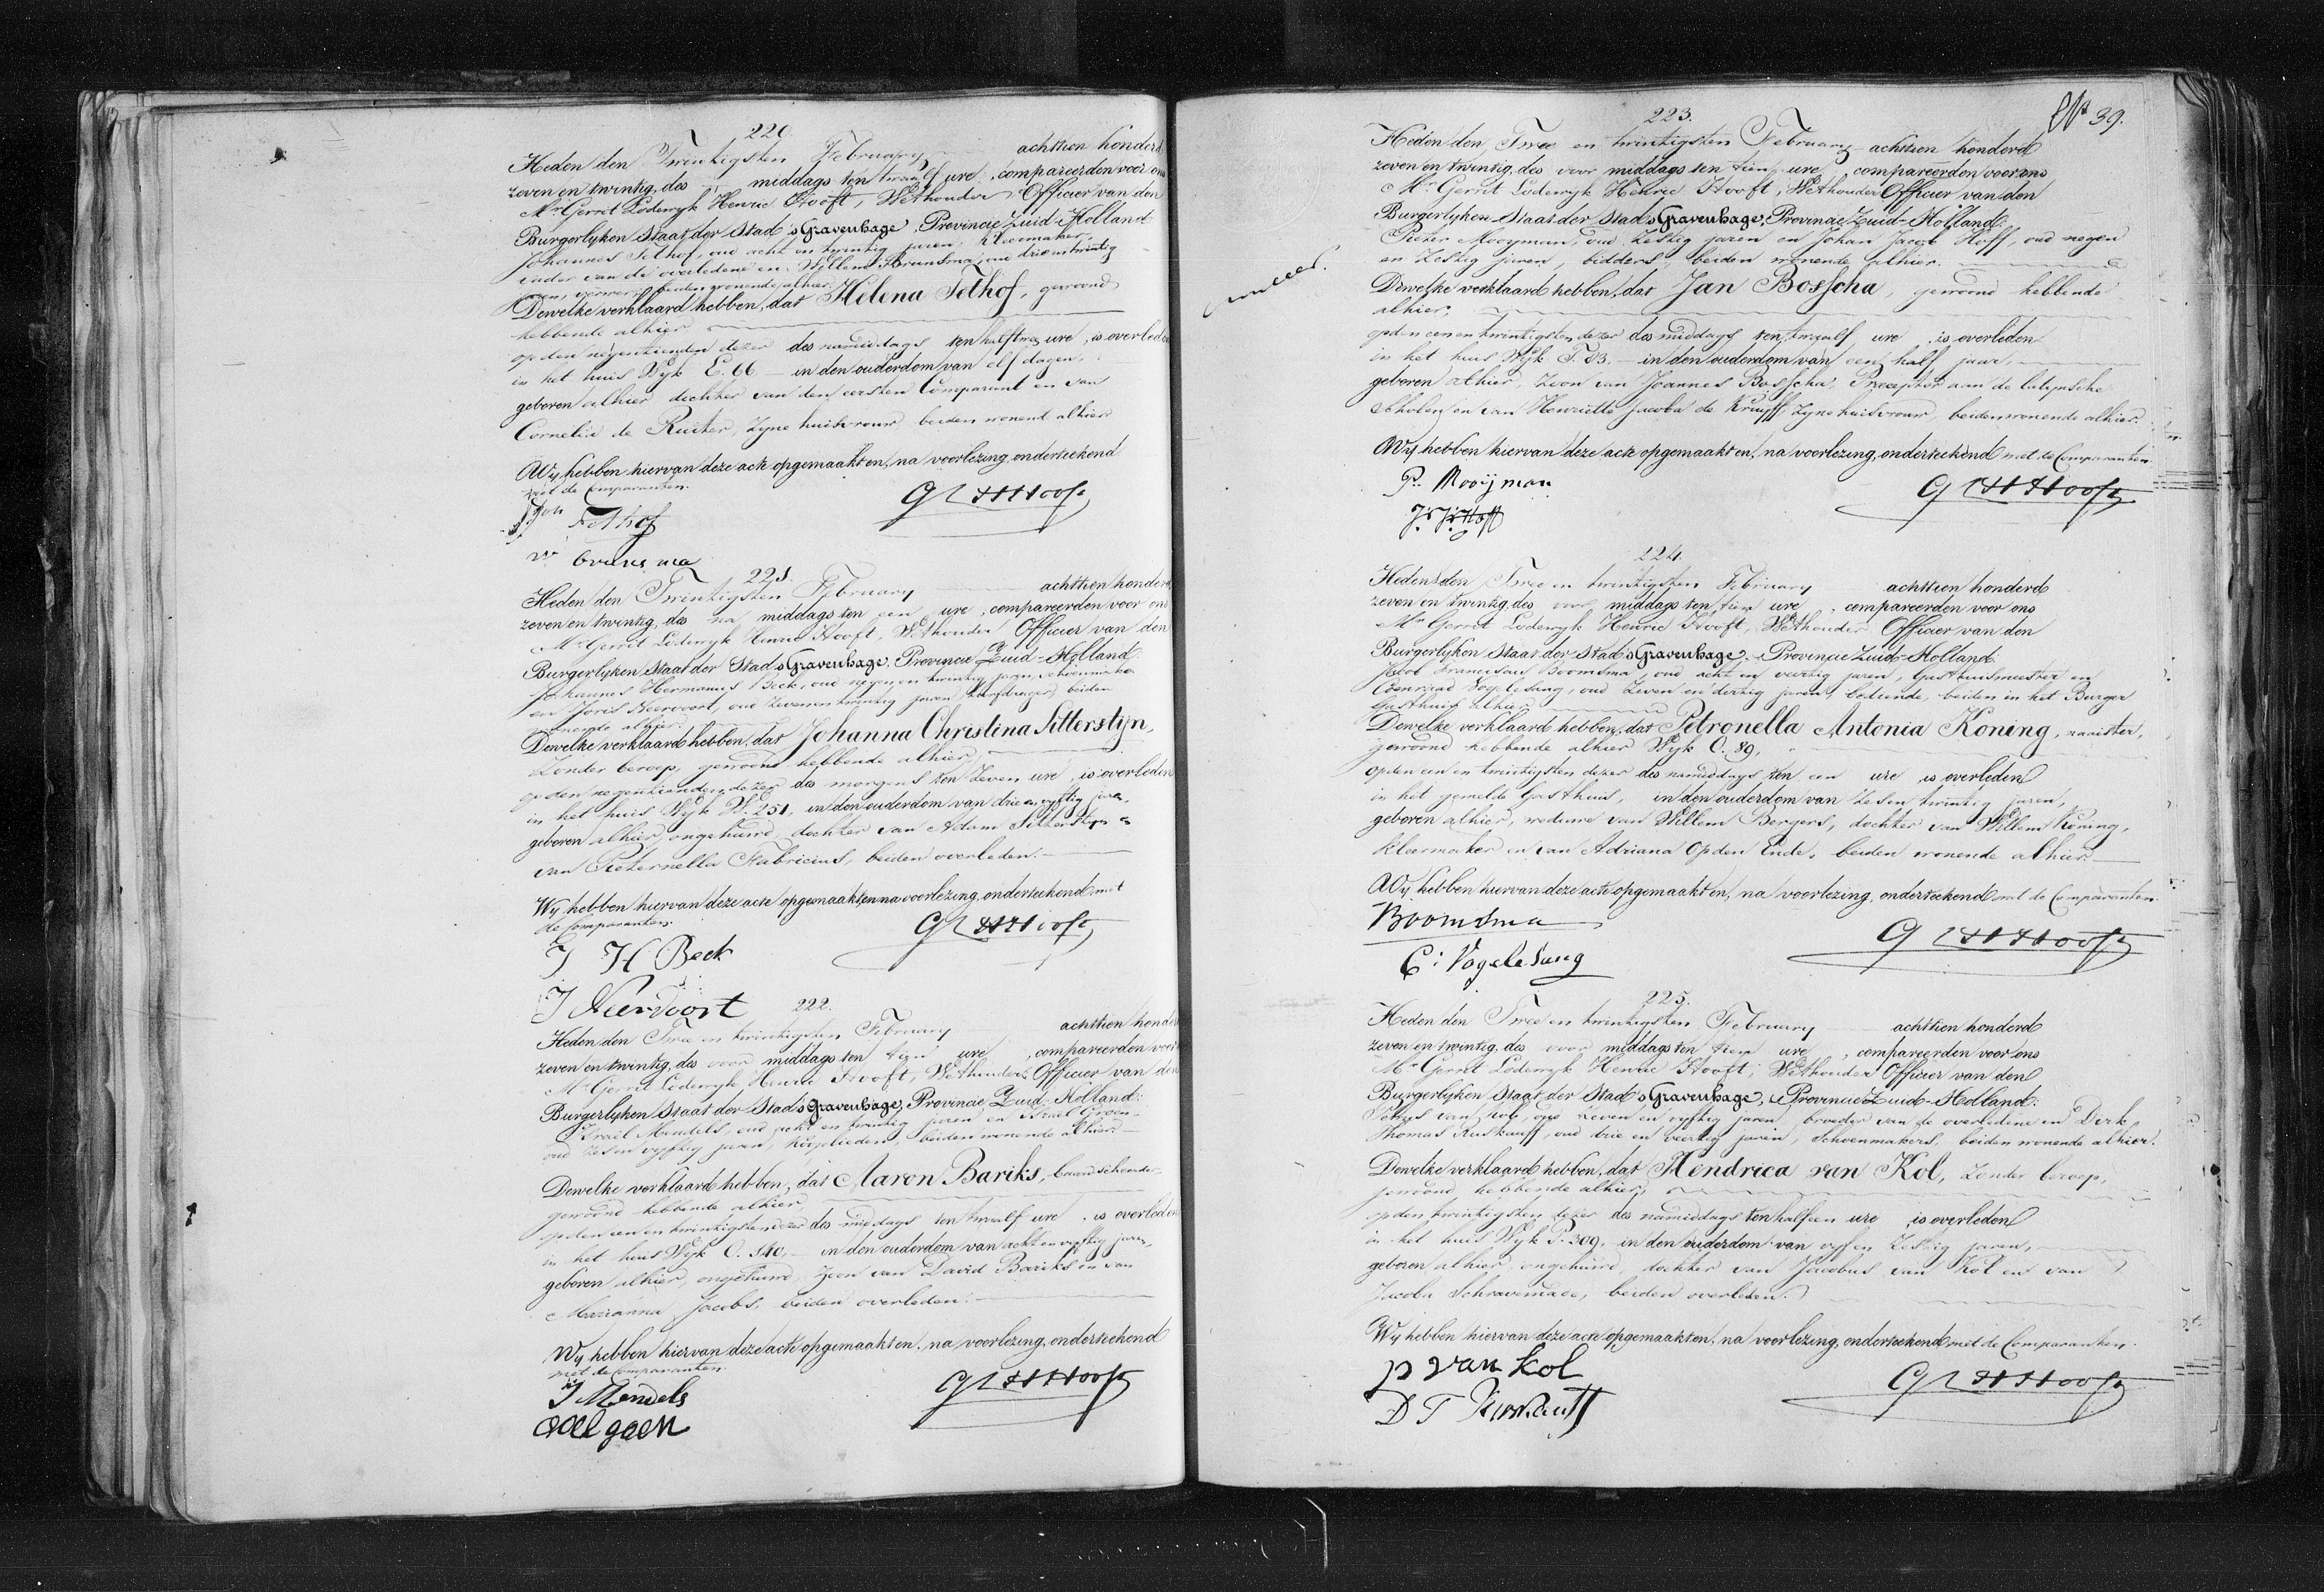 220.
Heden den Twintigsten February achttien honderd
zeven en twintig, des middags ten twaalf ure, compareerden voor ons
Mr Gerrit Lodewyk Henric Hooft, Wethouder Officier van den
Burgerlyken Staat der Stad 's Gravenhage, Provincie Zuid-Holland
Johannes Tethof, oud acht en twintig jaren, kleermaker,
vader van de overledene en Willem Bruinsma, oud drie en twintig
jaren, verwer, beiden wonende alhier.
Dewelke verklaard hebben, dat Helena Tethof, gewoond
hebbende alhier
op den negentienden dezer des namiddags ten half twee ure, is overleden
in het huis Wyk E. 66. in den ouderdom van elf dagen,
geboren alhier dochter van den eersten Comparant en van
Cornelia de Ruiter, zyne huisvrouw beiden wonend alhier
Wy hebben hiervan deze acte opgemaakt en, na voorlezing, onderteekend
met de Comparanten.
Tethof
GLHHooft
221.
Heden den Twintigsten February achttien honderd
zeven en twintig, des na middags ten een ure, compareerden voor ons
Mr Gerrit Lodewyk Henric Hooft, Wethouder Officier van den
Burgerlyken Staat der Stad 's Gravenhage, Provincie Zuid-Holland
Johannes Hermanus Beck, oud negen en twintig jaren, schoenmaker
en Joris Neervoort, oud zeven en twintig jaren, beiden
wonende alhier.
Dewelke verklaard hebben, dat Johanna Christina Sitterstyn,
zonder beroep, gewoond hebbende alhier,
op den negentienden dezer des morgens ten zeven ure, is overleden
in het huis Wyk W. 251, in den ouderdom van drie en vyftig jaren,
geboren alhier, ongehuwd, dochter van Adam Sitterstyn en
van Pieternella Fabricius, beiden overleden.
Wy hebben hiervan deze acte opgemaakt en, na voorlezing, onderteekend met
de Comparanten.
J H Beck
GLHHooft
J Neervoort
222.
Heden den Twee en twintigsten February achttien honderd
zeven en twintig, des voor middags ten tien ure, compareerden voor
Mr Gerrit Lodewyk Henric Hooft, Wethouder Officier van den
Burgerlyken Staat der Stad 's Gravenhage, Provincie Zuid-Holland:
Israël Mendels, oud acht en twintig jaren en Israël Groen
oud zes en vyftig jaren, kooplieden, beiden wonende alhier.
Dewelke verklaard hebben, dat Aaron Bariks, baardscheerder
gewoond hebbende alhier
op den een en twintigsten dezer des middags ten twaalf ure, is overleden
in het huis Wyk O. 140, in den ouderdom van acht en vyftig jaren,
geboren alhier, ongehuwd, zoon van David Bariks en van
Marianna Jacobs, beiden overleden.
Wy hebben hiervan deze acte opgemaakt en, na voorlezing, onderteekend
met de Comparanten.
J Mendels
GLHHooft
No 39.
223.
Heden den Twee en twintigsten February achttien honderd
zeven en twintig, des voor middags ten tien ure, compareerden voor ons
Mr Gerrit Lodewyk Henric Hooft, Wethouder Officier van den
Burgerlyken Staat der Stad 's Gravenhage, Provincie Zuid-Holland.
Pieter Mooyman, oud zestig jaren en Johan Jacob Hoff, oud negen
en zestig jaren, bidders, beiden wonende alhier.
Dewelke verklaard hebben, dat Jan Bosscha, gewoond hebbende
alhier,
op den een en twintigsten dezer des middags ten twaalf ure is overleden
in het huis Wyk T. 83. in den ouderdom van een half jaar,
geboren alhier, zoon van Joannes Bosscha, Preceptor aan de latynsche
scholen en van Henriette Jacoba de Kruyff, zyne huisvrouw, beiden wonende alhier.
Wy hebben hiervan deze acte opgemaakt en, na voorlezing, onderteekend met de Comparanten.
P. Mooijman
GLHHooft
J. J. Hoff
224.
Heden den Twee en twintigsten February achttien honderd
zeven en twintig, des voor middags ten tien ure, compareerden voor ons
Mr Gerrit Lodewyk Henric Hooft, Wethouder Officier van den
Burgerlyken Staat der Stad 's Gravenhage, Provincie Zuid-Holland.
Jacob Franciscus Boomsma, oud acht en veertig jaren, Gasthuismeester en
Coenraad Vogelesang, oud zeven en dertig jaren, bediende, beiden in het Burger
Gasthuis alhier
Dewelke verklaard hebben, dat Petronella Antonia Koning, naaister,
gewoond hebbende alhier Wyk O. 89,
op den een en twintigsten dezer des namiddags ten een ure is overleden
in het gemelde Gasthuis, in den ouderdom van zes en twintig jaren,
geboren alhier, weduwe van Willem Bergers, dochter van Willem Koning,
kleermaker en van Adriana Op den Ende, beiden wonende alhier
Wy hebben hiervan deze acte opgemaakt en, na voorlezing, onderteekend met de Comparanten.
Boomsma
GLHHooft
C: Vogelesang
225.
Heden den Twee en twintigsten February achttien honderd
zeven en twintig, des voor middags ten tien ure, compareerden voor ons
Mr Gerrit Lodewyk Henric Hooft, Wethouder Officier van den
Burgerlyken Staat der Stad 's Gravenhage, Provincie Zuid-Holland:
van Kol, oud zeven en vyftig jaren, broeder van de overledene en Dirk
Thomas Ruskauff, oud drie en veertig jaren, Schoenmakers, beiden wonende alhier.
Dewelke verklaard hebben, dat Hendrica van Kol, zonder beroep,
gewoond hebbende alhier,
op den twintigsten dezer des namiddags ten half een ure is overleden
in het huis Wyk P. 309, in den ouderdom van vyf en zestig jaren,
geboren alhier ongehuwd, dochter van Jacobus van Kol en van
Jacoba Schravemade, beiden overleden.
Wy hebben hiervan deze acte opgemaakt en, na voorlezing, onderteekend met de Comparanten.
p van kol
GLHHooft
D T Ruskauff